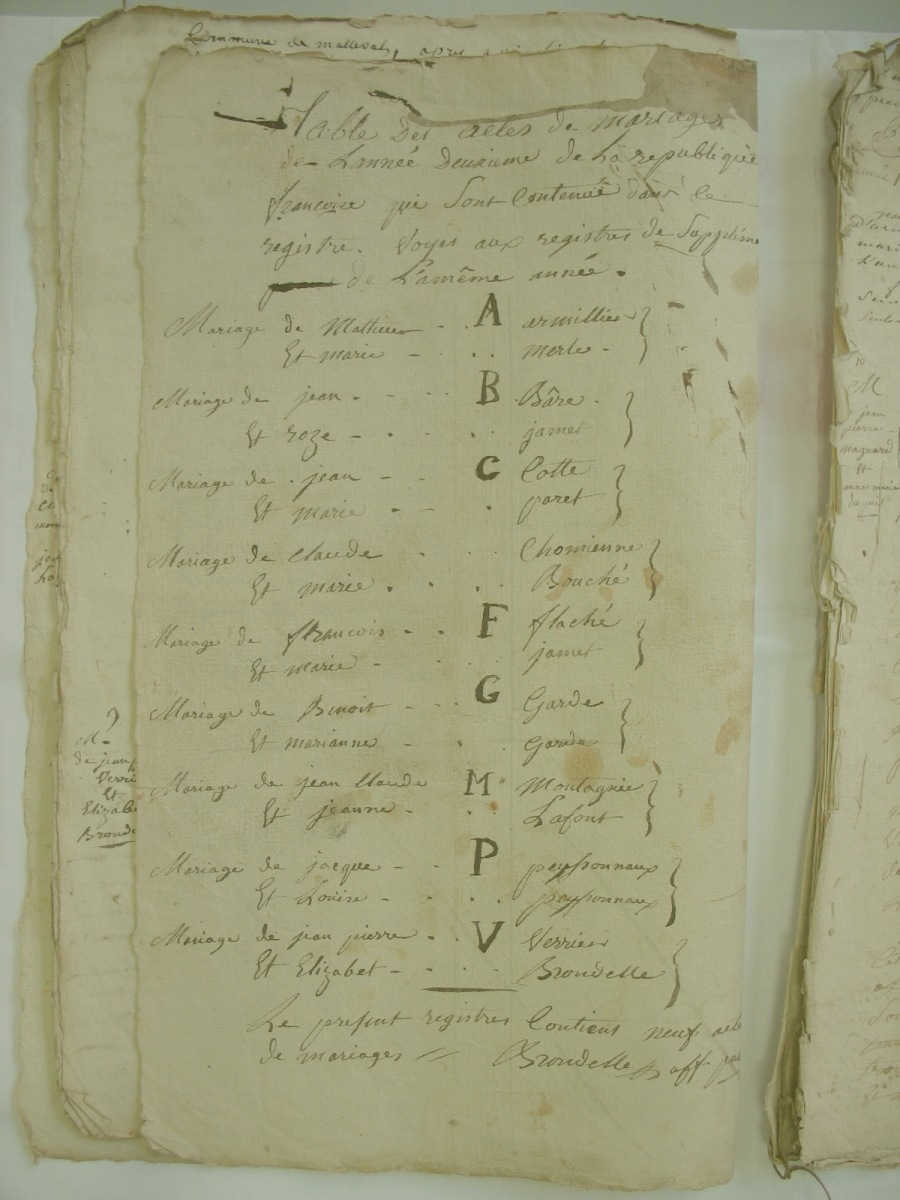 Commune de malleval, apres
Table des actes de mariages
de L'année deuxieme de La republique
francoise qui Sont Contenuë dans ce
registre. Voyes aux registres de Supplême
de L'amême année.
Mariage de Mathieu - . A armillier
Et marie - . . merle -
Mariage de jean . - . B Bâre -
Et roze - . . . jamet
Mariage de . jean - - C Cotte
Et marie - - . paret
Mariage de Claude . . . Chomienne
Et marie . . . . Bouché
Mariage de francois - . F flaché
Et marie - . jamet
Mariage de Benoit - . . G Garde
Et marianne - . Garde
Mariage de jean Claude M Montagnie
Et jeanne - . . Lafont
Mariage de jacque - - P peyssonnaux
Et Louise - . . peyssonnaux
Mariage de jean pierre - . V Verrier
Et Elizabet - . . . Brondelle
Le present registres Contiens neuf acte
de mariages // Brondelle off
M.
de jean
Verri
Et
Elizab
Bronde
M
jean
pierre
maynard
Et
anne marie